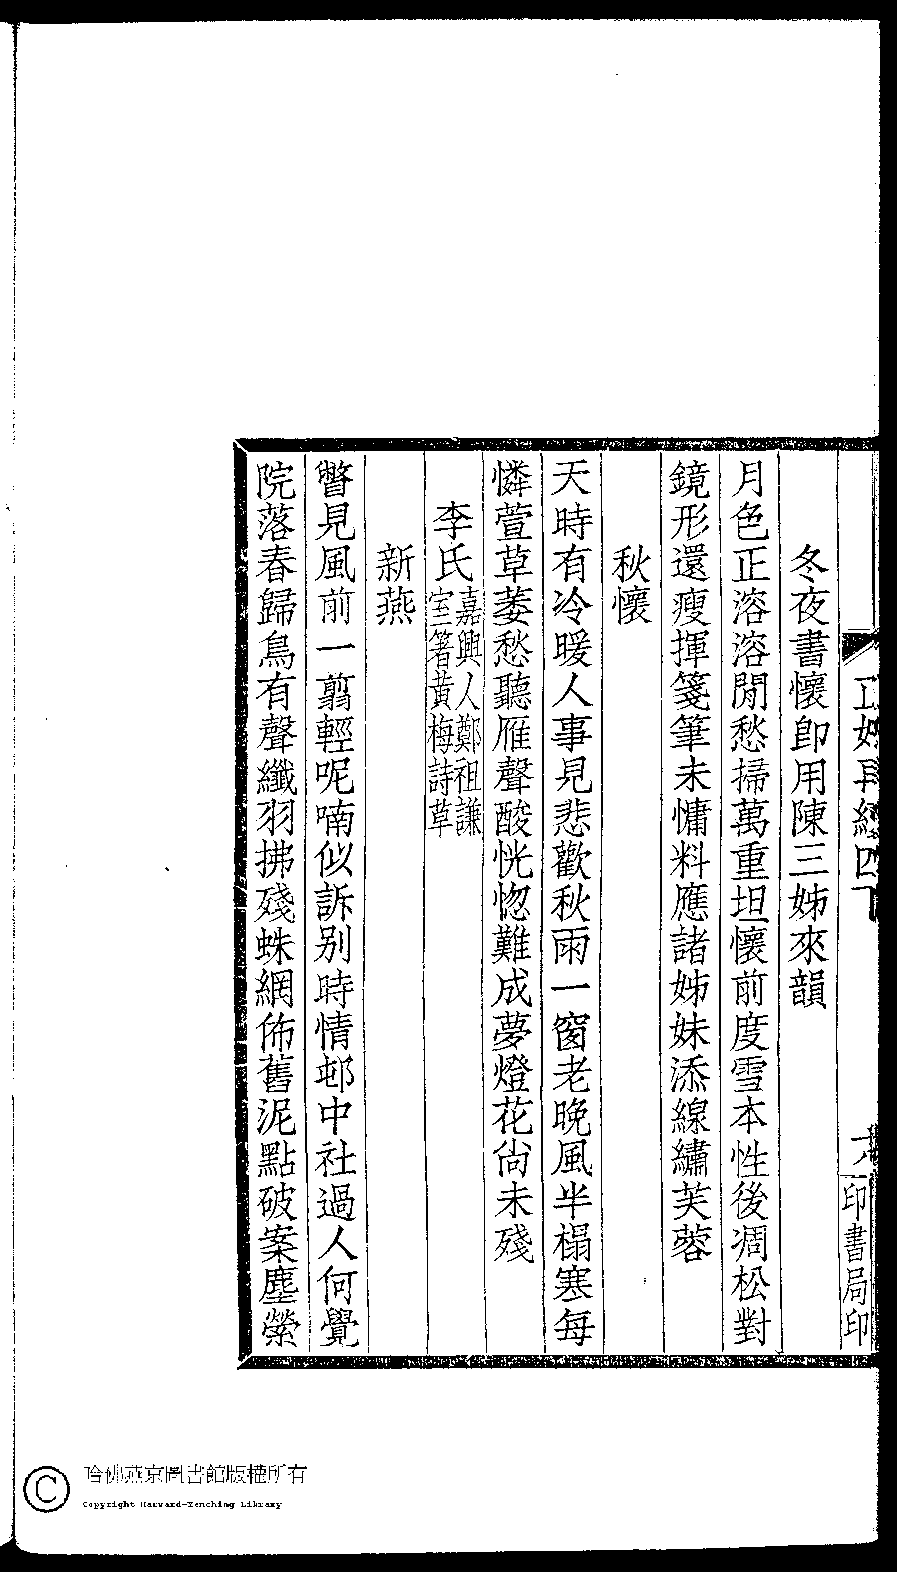 冬夜書懷即用陳三姊來韻
月色正溶溶閒愁掃萬重坦懷前度雪本性後凋松對
鏡形還瘦揮箋筆未慵料應諸姊妹添線繡芙蓉
秋懷
天時有冷暖人事見悲歡秋雨一窗老晚風半榻寒每
憐萱草萎愁聽雁聲酸恍惚難成夢燈花尙未殘
李氏嘉興人鄭祖謙室箸黃梅詩草
新燕
瞥見風前一翦輕呢喃似訴别時情邨中社過人何覺
院落春歸鳥有聲纖羽拂殘蛛網佈舊泥點破案塵縈
印書局印
哈佛燕京圖書館版權所有
Copyright Harvard-Yenching Library